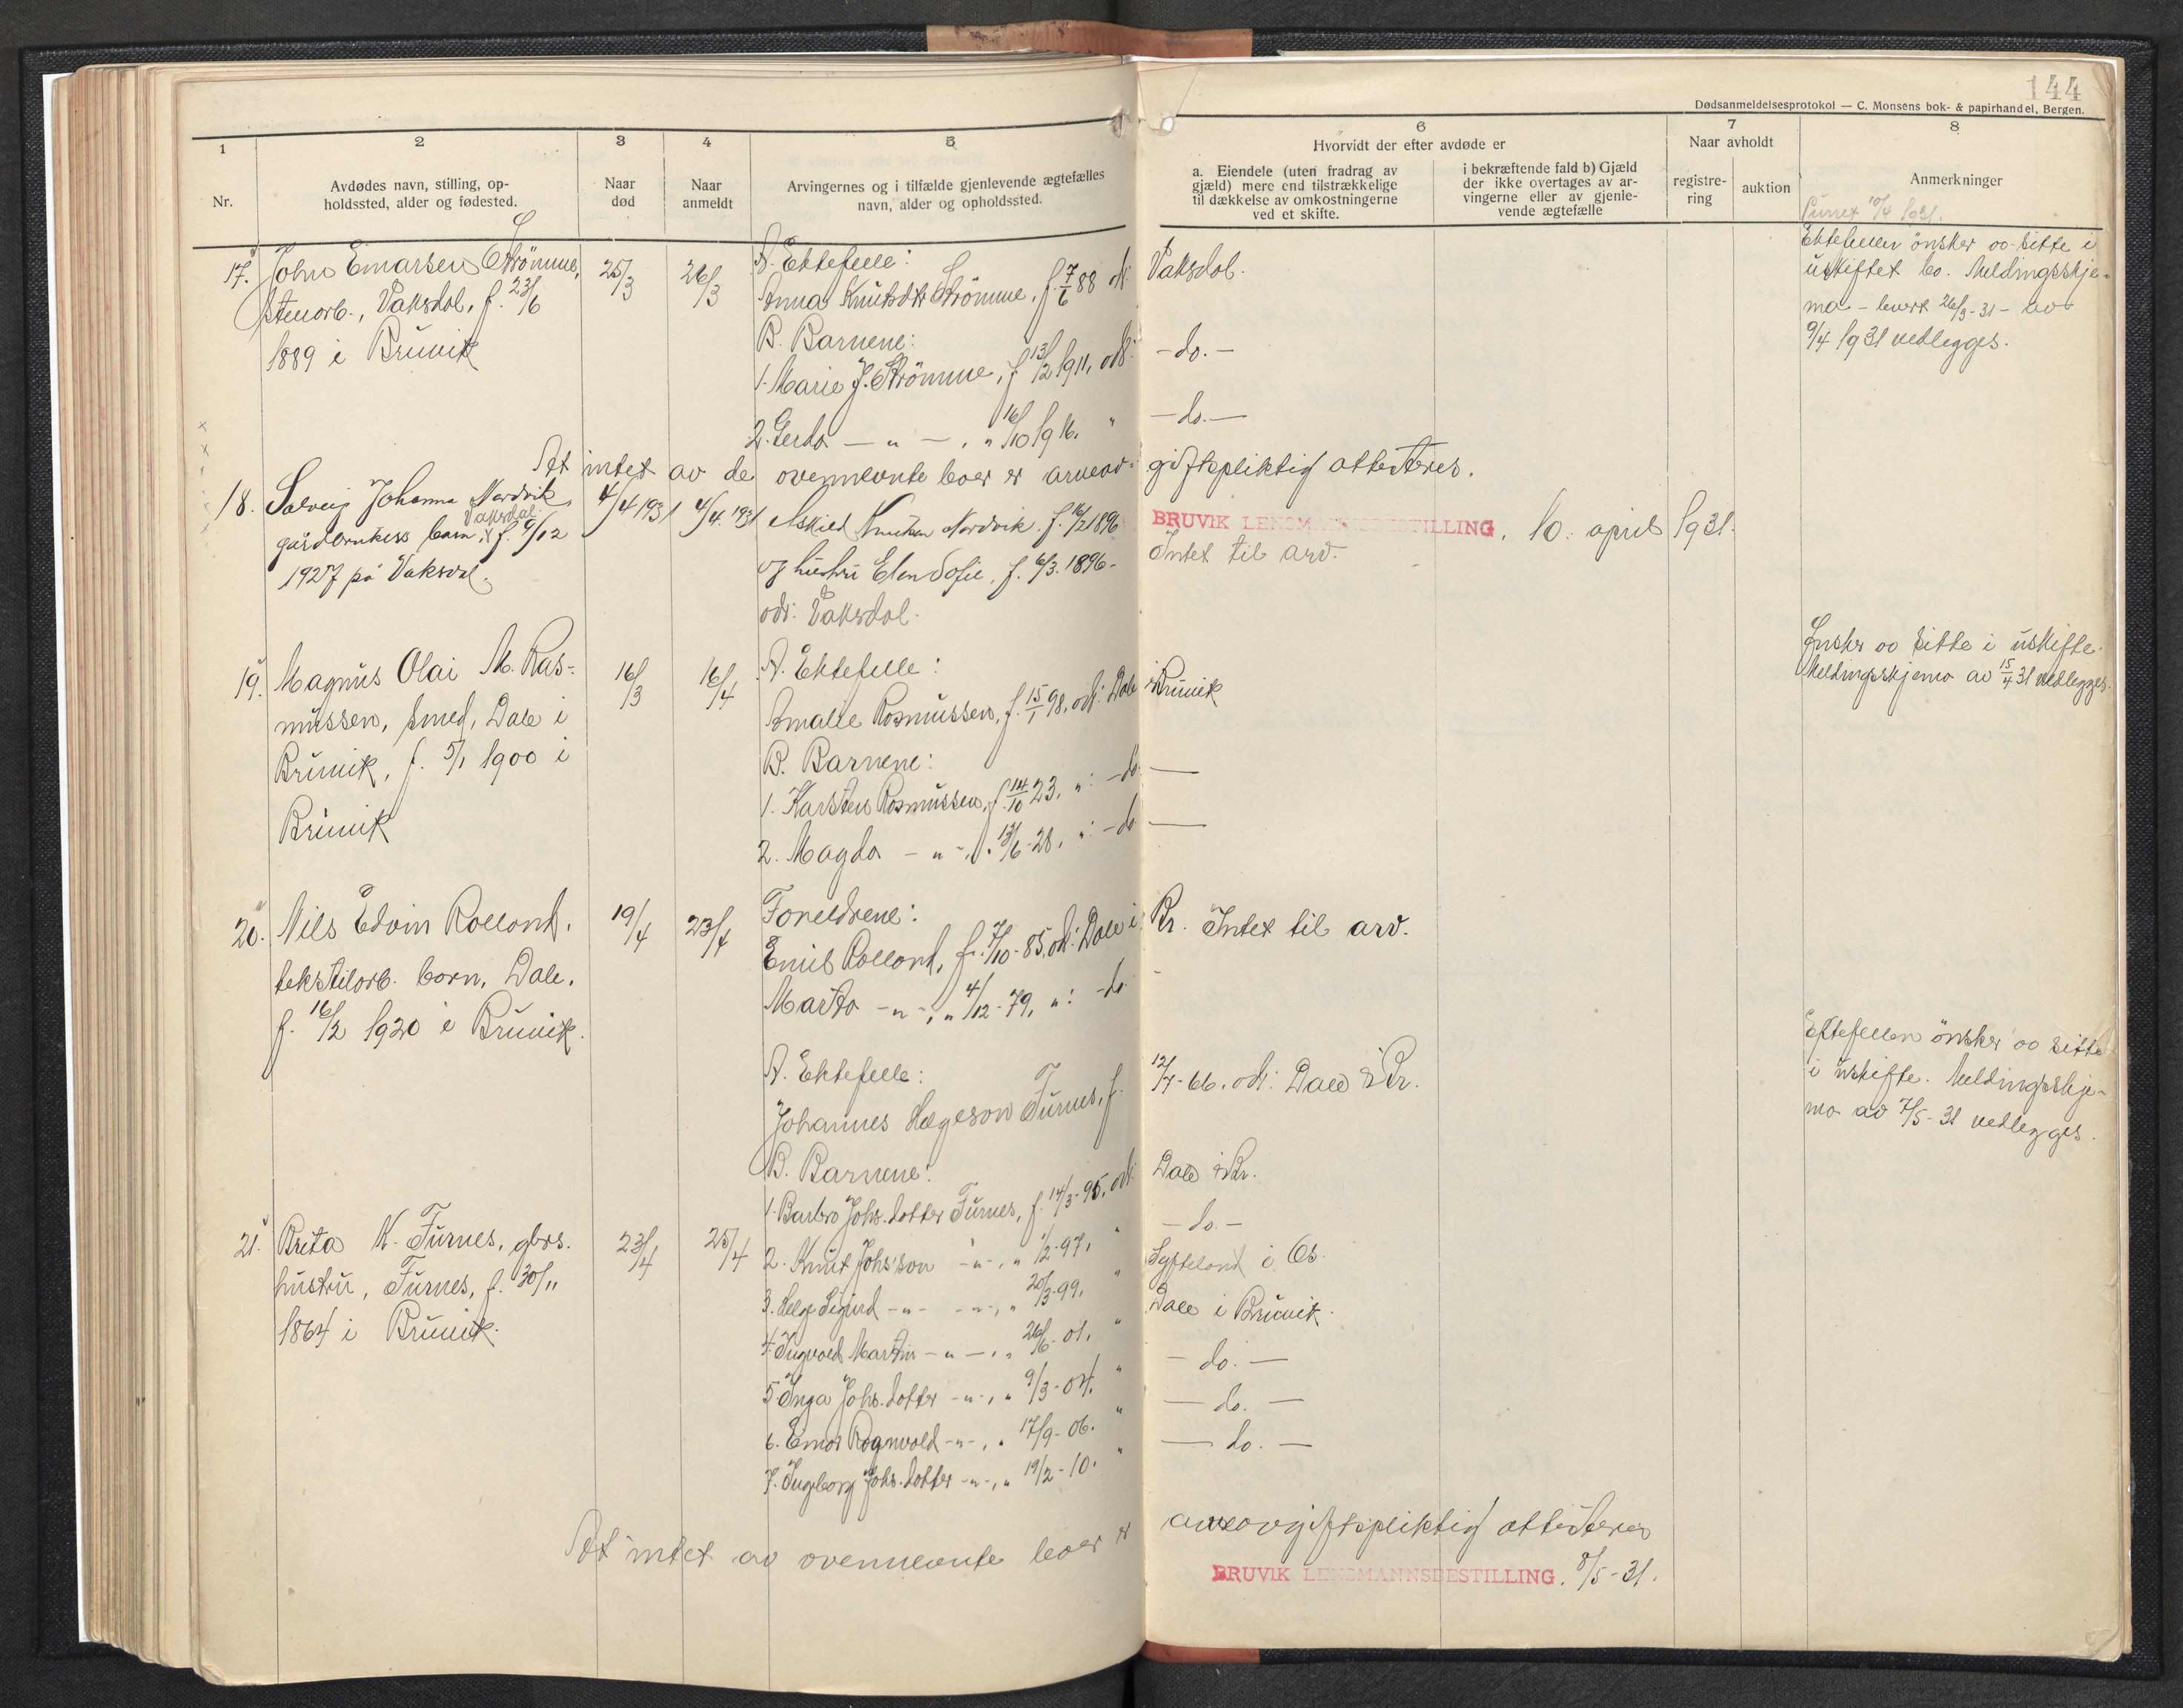 144
Dødsanmeldelsesprotokol — C. Monsens bok- & papirhandel, Bergen.
1
Nr.
2
Avdødes navn, stilling, op-
holdssted, alder og fødested.
3
Naar
død
4
Naar
anmeldt
5
Arvingernes og i tilfælde gjenlevende ægtefælles
navn, alder og opholdssted.
6
Hvorvidt der efter avdøde er
a. Eiendele (uten fradrag av
gjæld) mere end tilstrækkelige
til dækkelse av omkostningerne
ved et skifte.
i bekræftende fald b) Gjæld
der ikke overtages av ar-
vingerne eller av gjenle-
vende ægtefælle
7
Naar avholdt
registre-
ring
auktion
8
Anmerkninger
Purret 10/4 1931.
17. John Einarsen Strömme,
stenarb., Vaksdal, f. 23/6
1889 i Bruvik
25/3
26/3
A. Ektefelle:
Anna Knutsdtr Strömme, f. 7/6 88 odt: Vaksdal.
B. Barnene:
1. Marie J. Strömme, f. 13/2 1911, odt: -do.-
2. Gerda — " — , " 16/10 1916. " -do.-
Ektefellen önsker oo sitte i
uskiftet bo. Meldingsskje-
ma - levert 26/3-31 - av
9/4 1931 vedlegges.
At intet av de ovennevnte boer er arveav-giftspliktig attesteres.
BRUVIK LENSMANNSBESTILLING, 10. april 1931.
18. Solveig Johanna Nordvik
gårdbrukers barn, Vaksdal f. 9/12
1927 på Vaksdal.
4/4 1931
4/4. 1931
Askild Knutsen Nordvik f. 16/2 1896
og hustru Elen Sofie, f. 6/3. 1896-
odt: Vaksdal.
Intet til arv.
19. Magnus Olai M. Ras-
mussen, smed, Dale i
Bruvik, f. 5/1 1900 i
Bruvik
16/3
16/4
A. Ektefelle:
Amalie Rasmussen, f. 15/1 98, odt: Dale i Bruvik
B. Barnene:
1. Karsten Rasmussen, f. 14/10 23, ": -do-
2. Magda - " -, ". 13/6-28, ": -do-
Ønsker oo sitte i uskifte.
Meldingsskjema av 15/4 31 vedlegges.
20. Nils Edvin Rolland,
tekstilarb. barn, Dale,
f. 16/2 1920 i Bruvik.
19/4
23/4
Foreldrene:
Emil Rolland, f. 7/10-85, odt: Dale i Br. Intet til arv.
Marta - " -, " 4/12-79, ": -do-
21. Brita K. Furnes, gbrs.
hustru, Furnes, f. 30/11
1864 i Bruvik.
23/4
25/4
A. Ektefelle:
Johannes Helgeson Furnes, f. 12/7-66, odt: Dale i Br.
B. Barnene:
1. Barbro Johs.dotter Furnes, f. 14/3-95, odt: Dale i Br.
2. Knut Johs'son - " -, " 1/2-97, " -do.-
3. Helge Sigurd - " - - " -, " 20/3-99, " Syfteland i Os.
4. Ingvald Martin - " -, " 26/6-01, " Dale i Bruvik.
5. Inga Johs.dotter - " -, " 9/3-04, " -do.-
6. Einar Ragnvald - " -, " 17/9-06. " -do.-
7. Ingeborg Johs.dotter - " -, " 19/2-10. " -do.-
Ektefellen önsker oo sitte
i uskifte. Meldingsskje-
ma av 7/5-31 vedlegges.
At intet av ovennevnte boer er arveavgiftspliktig attesteres
BRUVIK LENSMANNSBESTILLING, 8/5-31.